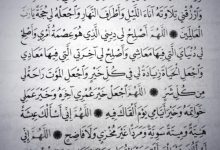 وَٱرْزُقْنِى تِلَاوَتَهُۥ ءَانَآءَ ٱلَّيْلِ وَأَطْرَافَ ٱلنَّهَارِ وَٱجْعَلْهُ لِى حُجَّةً يَارَبَّ
ٱلْعَٰلَمِينَ ۞ ٱللَّهُمَّ أَصْلِحْ لِى دِينِىَ ٱلَّذِى هُوَ عِصْمَةُ أَمْرِى وَأَصْلِحْ
لِى دُنْيَاىَ ٱلَّتِى فِيهَا مَعَاشِى وَأَصْلِحْ لِى ءَاخِرَتِى ٱلَّتِى فِيهَا مَعَادِى
وَٱجْعَلِ ٱلْحَيَاةَ زِيَادَةً لِى فِى كُلِّ خَيْرٍ وَٱجْعَلِ ٱلْمَوْتَ رَاحَةً لِى
مِن كُلِّ شَرٍّ ۞ ٱللَّهُمَّ ٱجْعَلْ خَيْرَ عُمْرِى ءَاخِرَهُۥ وَخَيْرَ عَمَلِى
خَوَاتِمَهُۥ وَخَيْرَ أَيَّامِى يَوْمَ أَلْقَاكَ فِيهِ ۞ ٱللَّهُمَّ إِنِّى أَسْأَلُكَ عِيشَةً
هَنِيَّةً وَمِيتَةً سَوِيَّةً وَمَرَدًّا غَيْرَ مُخْزٍ وَلَا فَاضِحٍ ۞ ٱللَّهُمَّ إِنِّى